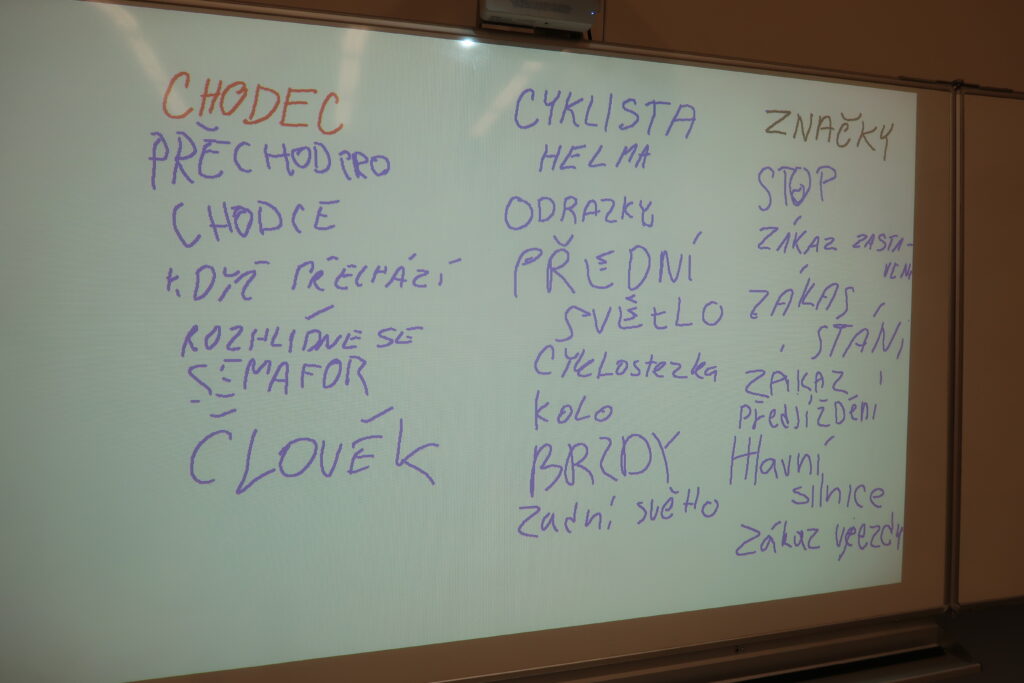 CHODEC
PŘĚCHOD PRO
CHODCE
KDYŽ PŘECHÁZÍ
ROZHLÍDNE SE
SEMAFOR
ČLOVĚK
CYKLISTA
HELMA
ODRAZKY
PŘEDNÍ
SVĚTLO
CYKLostezka
KOLO
BRZDY
zadní světlo
ZNAČKY
STOP
ZÁKAZ ZASTA-
VENÍ
ZÁKAS
STÁNÍ
ZÁKAZ
Předjíždění
Hlavní
silnice
zákaz vjezdu